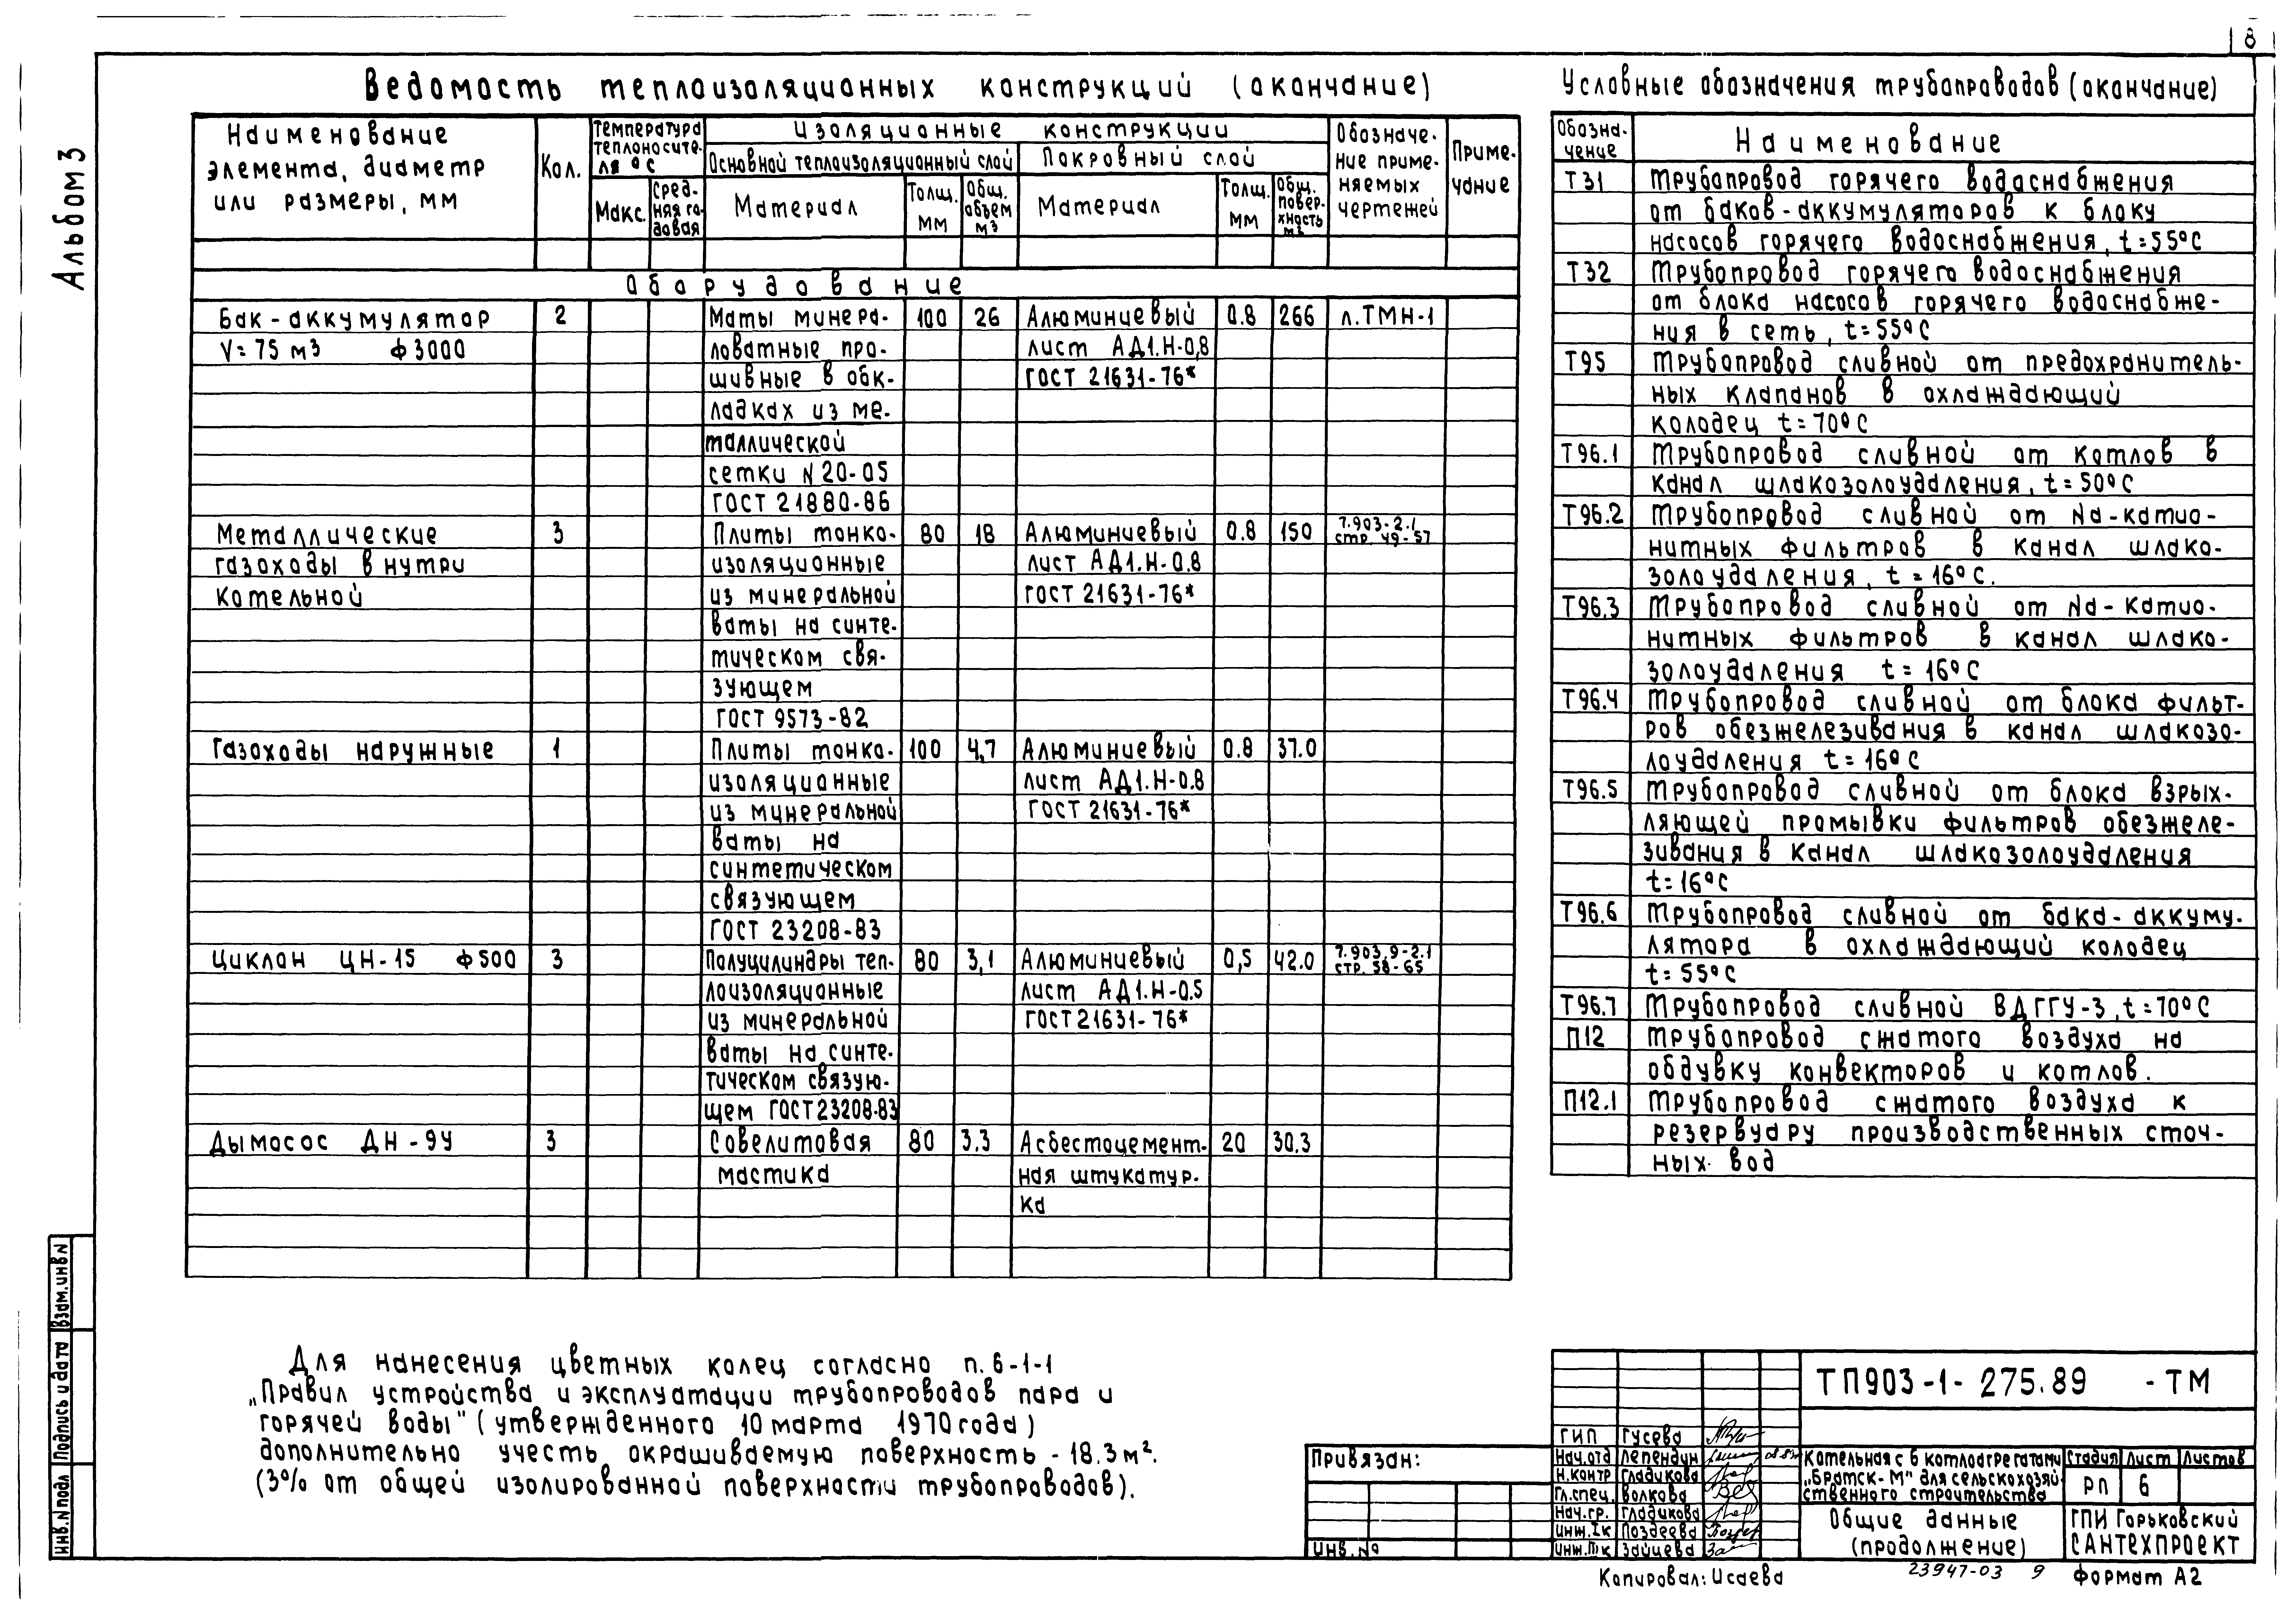 8
Альбом 3
Ведомость теплоизоляционных конструкций (окончание)
Наименование элемента, диаметр или размеры, мм
Кол.
Температура теплоносителя °С
Макс.
Средняя годовая
Изоляционные конструкции
Основной теплоизоляционный слой
Покровный слой
Материал
Толщ. мм
Общ. объем м3
Материал
Толщ. мм
Общ. поверхность м2
Обозначе-
ние приме-
няемых
чертежей
Приме-
чание
Оборудование
Бак-аккумулятор 2 Маты минера- 100 26 Алюминиевый 0.8 266 л.ТМН-1
V=75 м3 ф3000 ловатные про- лист АД1.Н-0,8
шивные в обк- ГОСТ 21631-76*
ладках из ме-
таллической
сетки N20-05
ГОСТ 21880-86
Металлические 3 Плиты тонко- 80 18 Алюминиевый 0.8 150 7.903-2.1 стр. 49-57
газоходы внутри изоляционные лист АД1.Н-0.8
котельной из минеральной ГОСТ 21631-76*
ваты на синте-
тическом свя-
зующем
ГОСТ 9573-82
Газоходы наружные 1 Плиты тонко- 100 4,7 Алюминиевый 0.8 37.0
изоляционные лист АД1.Н-0.8
из минеральной ГОСТ 21631-76*
ваты на
синтетическом
связующем
ГОСТ 23208-83
Циклон ЦН-15 ф500 3 Полуцилиндры теп- 80 3,1 Алюминиевый 0,5 42.0 7.903.9-2.1 стр. 58-65
лоизоляционные лист АД1.Н-0.5
из минеральной ГОСТ21631-76*
ваты на синте-
тическом связую-
щем ГОСТ23208-83
Дымосос ДН-9У 3 Совелитовая 80 3.3 Асбестоцемент- 20 30.3
мастика ная штукатур-
ка
Условные обозначения трубопроводов (окончание)
Обозна-
чение
Наименование
Т31 Трубопровод горячего водоснабжения
от баков-аккумуляторов к блоку
насосов горячего водоснабжения, t=55°С
Т32 Трубопровод горячего водоснабжения
от блока насосов горячего водоснабже-
ния в сеть, t=55°С
Т95 Трубопровод сливной от предохранитель-
ных клапанов в охлаждающий
колодец t=70°С
Т96.1 Трубопровод сливной от котлов в
канал шлакозолоудаления, t=50°С
Т96.2 Трубопровод сливной от Na-катио-
нитных фильтров в канал шлако-
золоудаления, t=16°С.
Т96.3 Трубопровод сливной от Na-катио-
нитных фильтров в канал шлако-
золоудаления t=16°С
Т96.4 Трубопровод сливной от блока фильт-
ров обезжелезивания в канал шлакозо-
лоудаления t=16°С
Т96.5 Трубопровод сливной от блока взрых-
ляющей промывки фильтров обезжеле-
зивания в канал шлакозолоудаления
t=16°С
Т96.6 Трубопровод сливной от бака-аккуму-
лятора в охлаждающий колодец
t=55°С
Т96.7 Трубопровод сливной ВДГГУ-3, t=70°С
П12 Трубопровод сжатого воздуха на
обдувку конвекторов и котлов.
П12.1 Трубопровод сжатого воздуха к
резервуару производственных сточ-
ных вод
Для нанесения цветных колец согласно п.6-1-1
„Правил устройства и эксплуатации трубопроводов пара и
горячей воды" (утвержденного 10 марта 1970 года)
дополнительно учесть окрашиваемую поверхность - 18.3 м².
(3% от общей изолированной поверхности трубопроводов).
Взам.инв.N
Подпись и дата
Инв.N подл
Привязан:
Инв.№
ТП903-1-275.89 -ТМ
ГИП Гусева
Нач.отд Лепендин
Н.контр Гладикова
Гл.спец. Волкова
Нач.гр. Гладикова
Инж.Iк Поздеева
Инж.IIк Зайцева
Котельная с 6 котлоагрегатами
„Братск-М" для сельскохозяй
ственного строительства
Стадия Лист Листов
РП 6
Общие данные
(продолжение)
ГПИ Горьковский
САНТЕХПРОЕКТ
Копировал: Исаева
23947-03 9
Формат А2